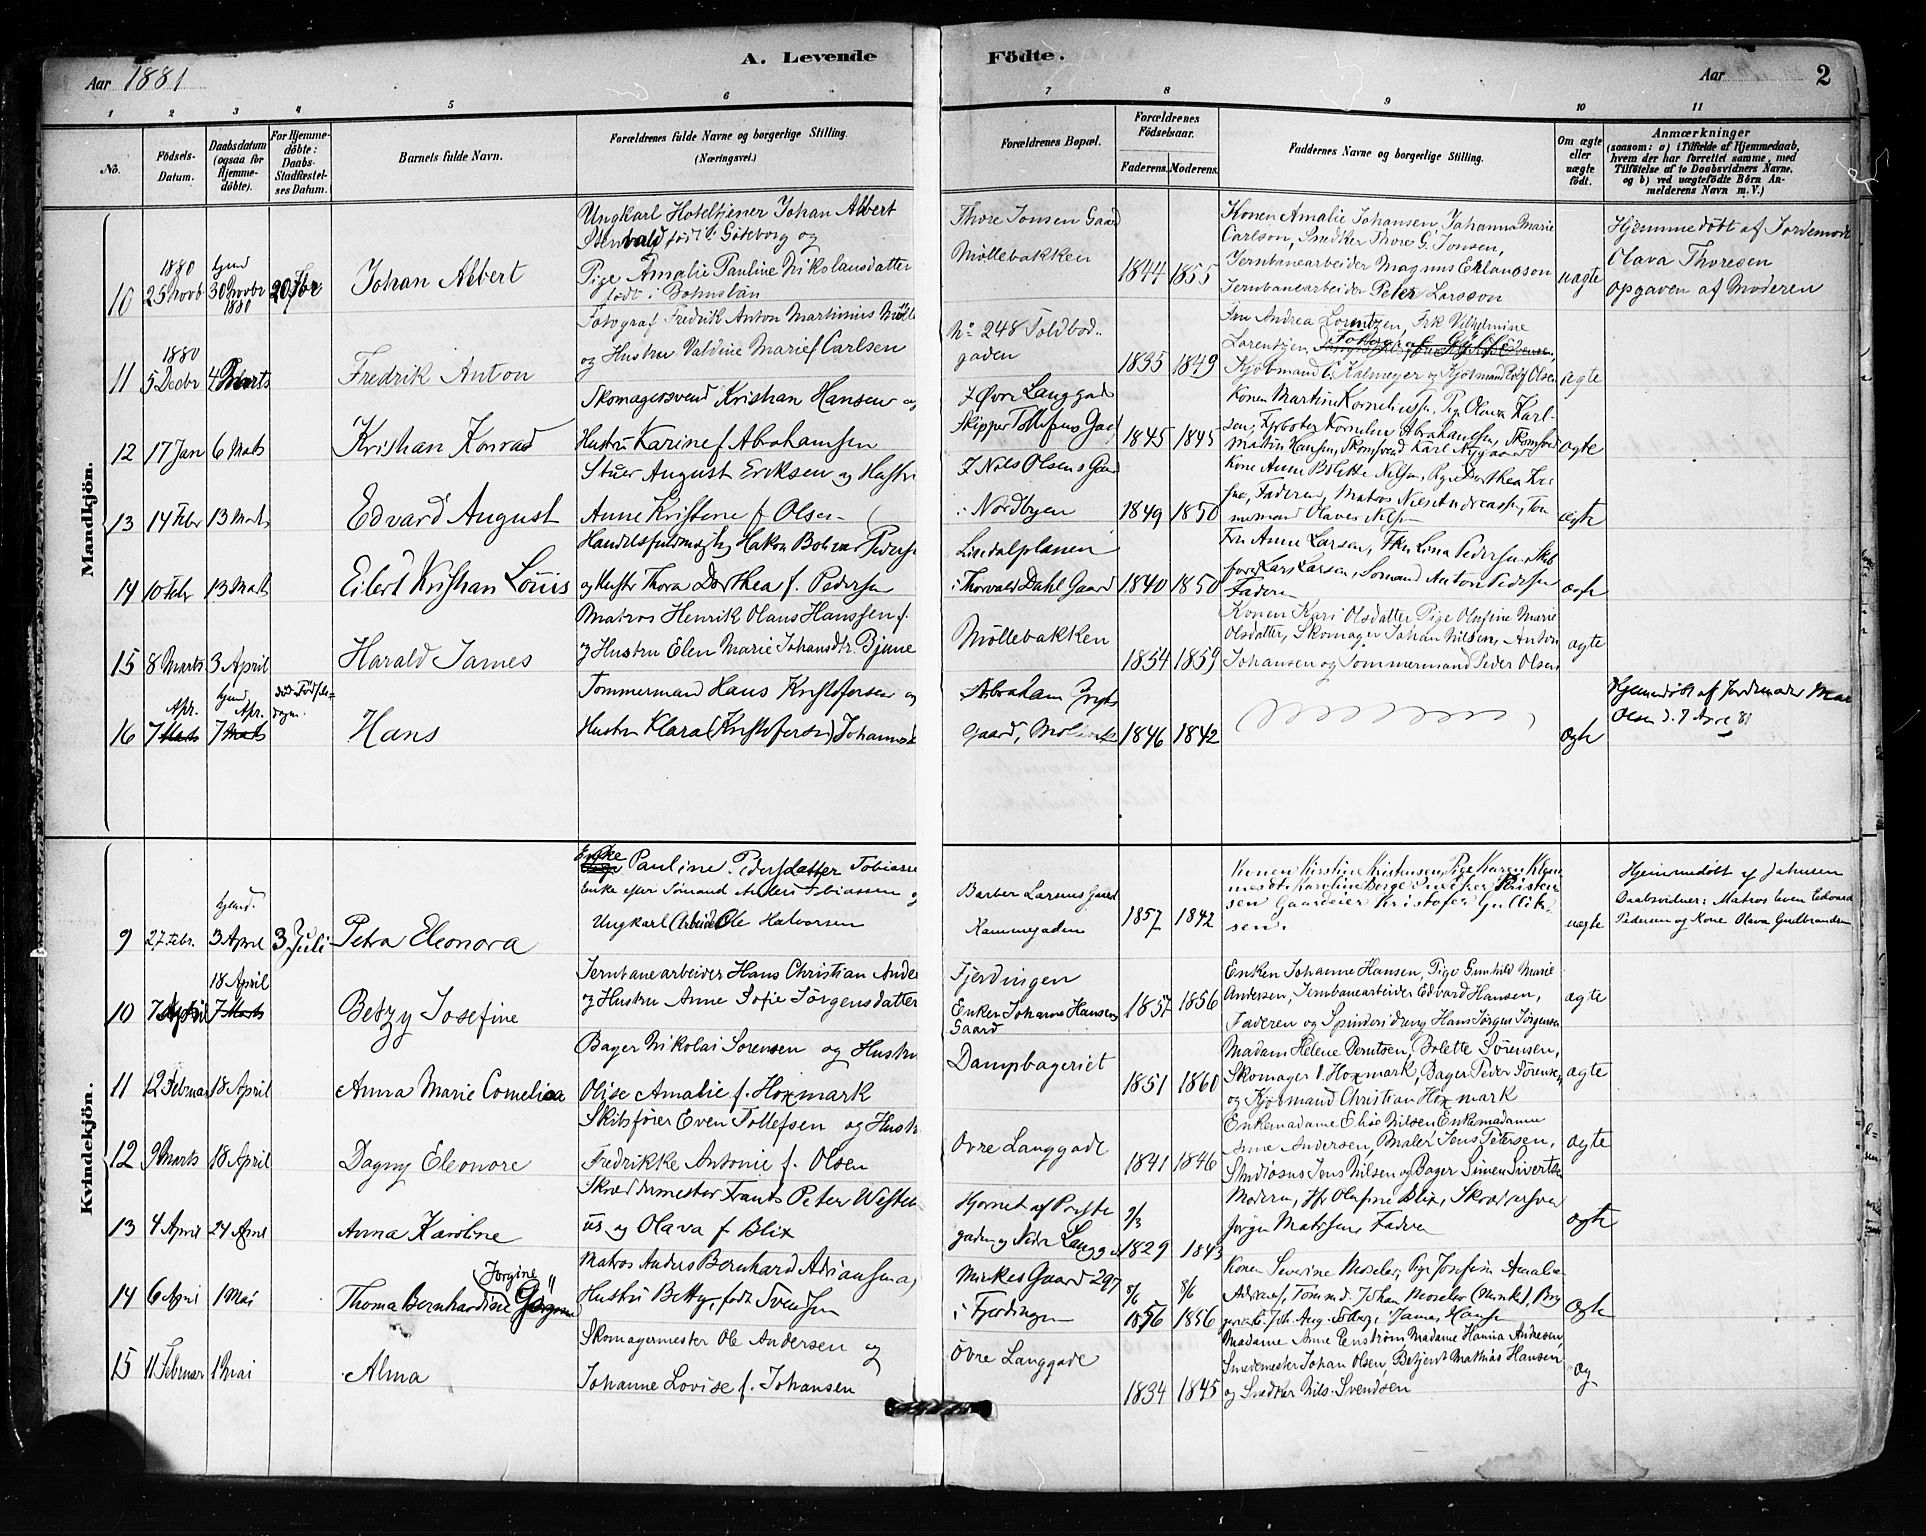 Aar 1881
A. Levende Födte.
Aar
2
1 2 3 4 5 6 7 8 9 10 11
No.
Födsels-Datum.
Daabsdatum (ogsaa for Hjemmedöbte).
For Hjemmedöbte: Daabs-Stadfæstelses Datum.
Barnets fulde Navn.
Forældrenes fulde Navne og borgerlige Stilling.
(Næringsvei.)
Forældrenes Bopæl.
Forældrenes Födselsaar.
Faderens. Moderens.
Faddernes Navne og borgerlige Stilling.
Om ægte eller uægte födt.
Anmærkninger
(saasom: a) i Tilfælde af Hjemmedaab,
hvem der har forrettet samme, med
Tilföielse af to Daabsvidners Navne.
og b) ved uægtefödte Börn An-
melderens Navn m. V.)
Mandkjön.
10
1880
25 Novb
hjmd
30 Novbr
1880
20 Fbr
Johan Albert
Ungkarl Hoteltjener Johan Albert
Stenvald født i Göteborg og
Pige Amalie Pauline Nikolausdatter
født i Bohuslän
Thore Jonsen Gaard
Møllebakken
1844 1855
Konen Amalie Johansen, Johanna Marie
Carlson, Snedker Thore G. Jonsen,
Jernbanearbeider Magnus Erlandson
Jernbanearbeider Peter Larsson
uægte
Hjemmedøbt af Jordemode
Olava Thoresen
Opgaven af Moderen
11
1880
5 Decbr
4 Marts
Fredrik Anton
Fotograf Fredrik Anton Martinius Mölle
og Hustru Valdine Marie f Carlsen
No 248 Toldbod..
gaden
1835 1849
Fru Andrea Lorentzen, Frk Vilhelmine
Lorentzen,
Kjøbmand C. Kalmeyer og Kjøbmand Olsen
ægte
12
17 Jan
6 Mats
Kristian Konrad
Skomagersvend Kristian Hansen og
Hustru Karine f Abrahamsen
I Øvre Langgad
Skipper Tollefsens Gaa
1845 1845
Konen Martine Korneliussen, Pige Olava Karl-
sen, Fyrbøter Kornelius Abrahamsen, Skomsvend
Martin Hansen, Skomsvend Karl Nygaard
ægte
13
14 Febr
13 Mats
Edvard August
Stuer August Eriksen og Hustru
Anne Kristene f Olsen
I Nils Olsens Gaa
i Nordbyen
1849 1850
Kone Anne Bolette Nilsen, Pige Dorthea
Faderen, Matros Nils Andreassen, Tøm
mermand Olaves Nilsen
ægte
14
10 Febr
13 Mats
Eilert Kristian Louis
Handelsfuldmægtig Hakon Bolivar Pederse
og Hustr Thora Dorthea f. Pedersen
Lindalplanen
i Thorvald Dahl Gaard
1840 1850
Fru Anne Larsen, Frk Lina Pedersen, Skib
fører Lars Larsen, Sømand Anton Pedersen
Faderen
ægte
15
8 Marts
3 April
Harald James
Matros Henrik Olaus Hanssen f.
og Hustru Elen Marie Johansdtr. Bjune
Möllebakken
1854 1859
Konen Kari Olsdatter, Pige Olufine Marie
Olsdatter, Skomager Johan Nilsen, Anton
Johansen og Tømmermand Peder Olsen
ægte
16
Apr.
7 Mats
hjmd
Apr.
7 Mats
død Fødsels=
dagen
Hans
Tømmermand Hans Kristofersen og
Hustru Klara (Kristofersen) Johannesd
Abraham
Gaard, Møllebak
1846 1842
ægte
Hjemmedøbt af Jordemoder Mar
Olsen d. 7 Apre 81
Kvindekjön.
9
27 Febr.
hjmd.
3 April
3 Juli
Petra Eleonora
Enke
Pauline Pedersdatter Tobiasse
Enke efter Sømand Anders Tobiassen og
Ungkarl (Arbeid) Ole Halvorsen
Barber Larsens Gaard
Kammegaden
1857 1842
Konen Kirstine Kristensen, Pige Karen Klem
mesdt. Karoline Berge Snedker Kristen
sen Gaardeier Kristofer Gullik
sen.
uægte
Hjemmedøbt af Johnsen
Daabsvidner: Matros Even Edvard
Pedersen og Kone Olava Gulbrandsen
10
7 April
18 April
7 Marts
Betzy Josefine
Jernbanearbeider Hans Christian Ander
og Hustru Anne Sofie Jørgensdatter
Fjerdingen
Enken Johanne Hansens
Gaard
1857 1856
Enken Johanne Hansen, Pige Gunhild Marie
Andersen, Jernbanearbeider Edvard Hansen,
Faderen og Spinderidreng Hans Jørgen Jørgensen
ægte
11
12 Februar
18 April
Anna Marie Cornelia
Bager Nikolai Sorensen og Hustru
Olise Amalie f. Hoxmark
Dampbageriet
1851 1860
Madam Helene Berntsen, Bolette Sørensen,
Skomager O. Hoxmark, Bager Peder Sørensen,
og Kjøbmand Christian Hoxmark
ægte
12
9 Marts
18 April
Dagny Eleonore
Skibsfører Even Tollefsen og Hustr
Fredrikke Antonie f. Olsen
Ovre Langgade
1841 1846
Enkemadame Elise Nilsen Enkemadame
Anne Andersen, Maler Jens Petersen,
Studiosus Jens Nilsen og Bager Simen Sivertse
ægte
13
4 April
24 April
Anna Karoline
Skræddermester Frants Peter Westeli
us og Olava f. Blix
Hjornet af Preste
gaden og Nedre Langgad
9/3
1829 1843
Moderen, Olufine Blix, Skrædersvend
Jørgen Mathisen, Faderen
ægte
14
6 April
1 Mai
Thoma Bernhardine
Jorgine
Matros Anders Bernhard Adriansen og
Hustru Betty, født Svendsen
Minkes Gaard 297
i Fjerdingen
8/6 8/6
1856 1856
Konen Severine Moseler, Pige Josefine Amalia
Adriansen, Tømmd. Johan Moseler (Minke), Bag
ersv. C. Joh. Aug. Solberg, James Hansen
ægte
15
11 Februar
1 Mai
Alma
Skomagermester Ole Andersen og
Johanne Lovise f. Johansen
Övre Langgade
1834 1845
Madame Anne Enström, Madame Hanna Andresen,
Smedemester Johan Olsen, Betjent Mathias Hansen
og Snedker Nils Svendsen
æg